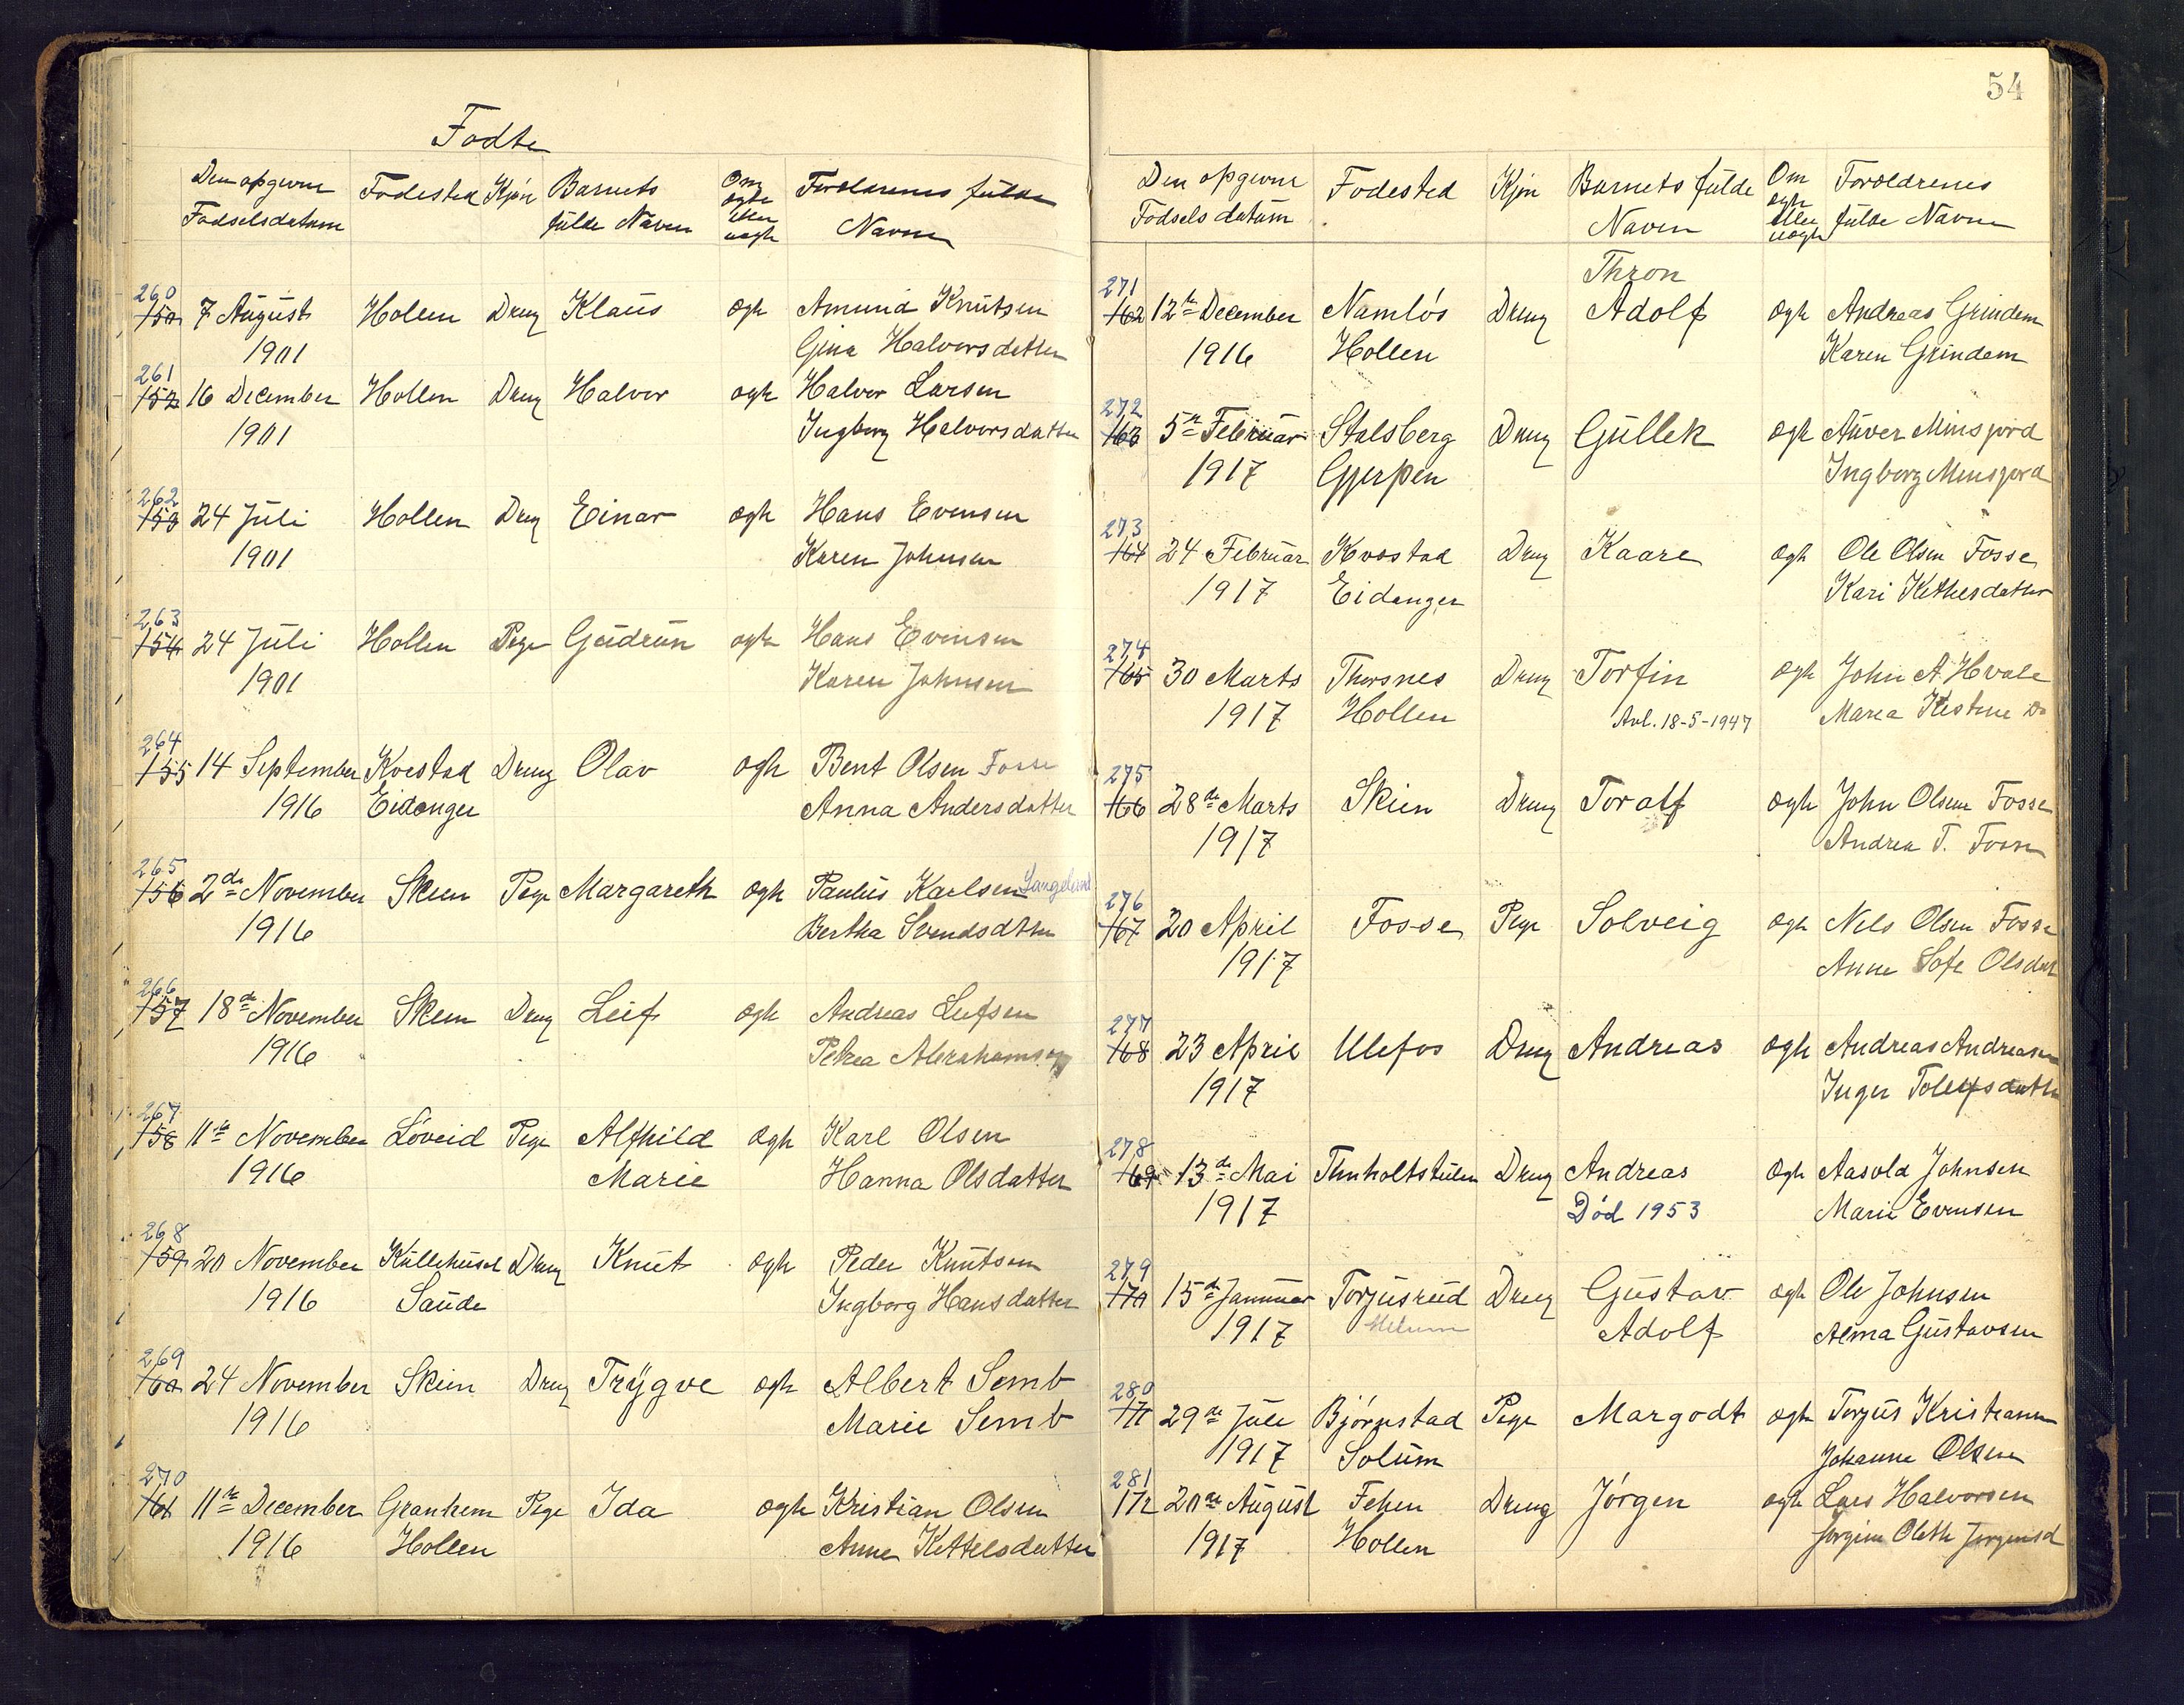 Fødte
Den opgivne Fødested Kjøn Barnets Om Forældrenes fulde
Fødselsdatum fulde Navn ægte eller uægte Navne
260
150 7 August Holen Dreng Klaus ægte Amund Knutsen
1901 Gina Halvorsdatter
261
152 16 December Hollen Dreng Halvor ægte Halvor Larsen
1901 Ingborg Halvorsdatter
262
153 24 Juli Hollen Dreng Einar ægte Hans Evensen
1901 Karen Johnsen
263
154 24 Juli Hollen Pige Gudrun ægte Hans Evensen
1901 Karen Johnsen
264
155 14 September Kvestad Dreng Olav ægte Bent Olsen Fosse
1916 Eidanger Anna Andersdatter
265
156 2de November Skien Pige Margareth ægte Paulus Karlsen Langeland
1916 Bertha Svendsdtter
266
157 18de November Skien Dreng Leif ægte Andreas Leifsen
1916 Petrea Abrahamsen
267
158 11te November Løveid Pige Alfhild ægte Karl Olsen
1916 Marie Hanna Olsdatter
268
159 20 November Kullehuset Dreng Knut ægte Peder Knutsen
1916 Saude Ingborg Hansdatter
269
160 24 November Skien Dreng Trygve ægte Albert Semb
1916 Marie Semb
270
161 11te December Granhem Pige Ida ægte Kristian Olsen
1916 Hollen Anne Kettelsdatter
54
Den opgivne Fødested Kjøn Barnets fulde Om Forældrenes
Fødselsdatum Navn ægte eller uægte fulde Navne
Thron
271
162 12te December Namløs Dreng Adolf ægte Andreas Grindem
1916 Hollen Karen Grindem
272
163 5te Februar Stalsberg Dreng Gullek ægte Auver Minsjord
1917 Gjerpen Ingborg Minsjord
273
164 24 Februar Kvostad Dreng Kaare ægte Ole Olsen Fosse
1917 Eidanger Kari Kethesdatter
274
165 30 Marts Thorsnes Dreng Torfin ægte John A. Hvale
1917 Hollen Avl. 18-5-1947 Marea Kestine Do
275
166 28de Marts Skien Dreng Toralf ægte John Olsen Fosse
1917 Andrea T. Fosse
276
167 20 April Fosse Pige Solveig ægte Nels Olsen Fosse
1917 Anne Sofe Olsdat
277
168 23 April Ulefos Dreng Andreas ægte Andreas Andreasen
1917 Inger Tolefsdatter
278
169 13de Mai Timholtstulen Dreng Andreas ægte Aasold Johnsen
1917 Død 1953 Marie Evensen
279
170 15de Januar Torjusrud Dreng Gustav ægte Ole Johnsen
1917 Melum Adolf Alma Gustavsen
280
171 29de Juli Bjørnstad Pige Margodt ægte Torjus Kristiansen
1917 Solum Johanne Olsen
281
172 20de August Fehen Dreng Jörgen ægte Lars Halvorsen
1917 Hollen Jørgine Oleth Jørgensd